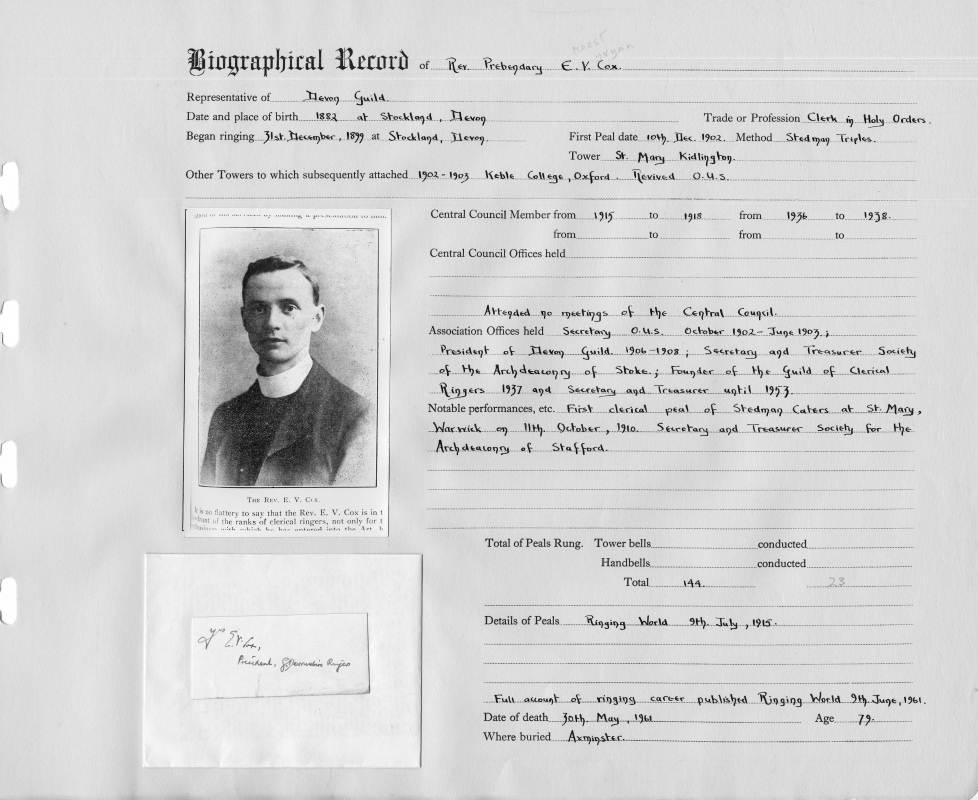 Biographical Record of Rev. Prebendary E. V. Cox.
Representative of Devon Guild.
Date and place of birth 1882 at Stockland, Devon Trade or Profession Clerk in Holy Orders.
Began ringing 31st. December, 1899 at Stockland, Devon. First Peal date 10th. Dec. 1902. Method Stedman Triples.
Tower St. Mary Kidlington.
Other Towers to which subsequently attached 1902-1903 Keble College, Oxford. Revived O.U.S.
Central Council Member from 1915 to 1918 from 1936 to 1938.
from to from to
Central Council Offices held
Attended no meetings of the Central Council.
Association Offices held Secretary O.U.S. October 1902-June 1903;
President of Devon Guild. 1906-1908; Secretary and Treasurer Society
of the Archdeaconry of Stoke.; Founder of the Guild of Clerical
Ringers 1937 and Secretary and Treasurer until 1953.
Notable performances, etc. First clerical peal of Stedman Caters at St. Mary,
Warwick on 11th. October, 1910. Secretary and Treasurer Society for the
Archdeaconry of Stafford.
THE REV. E. V. COX.
It is no flattery to say that the Rev. E. V. Cox is in t
of the ranks of clerical ringers, not only for t
with which he has entered into the Art, b
Total of Peals Rung. Tower bells conducted
Handbells conducted
Total 144. 23
Details of Peals Ringing World 9th. July, 1915.
E.V. Cox,
President,
Full account of ringing career published Ringing World 9th. June, 1961.
Date of death 30th. May, 1961 Age 79.
Where buried Axminster.